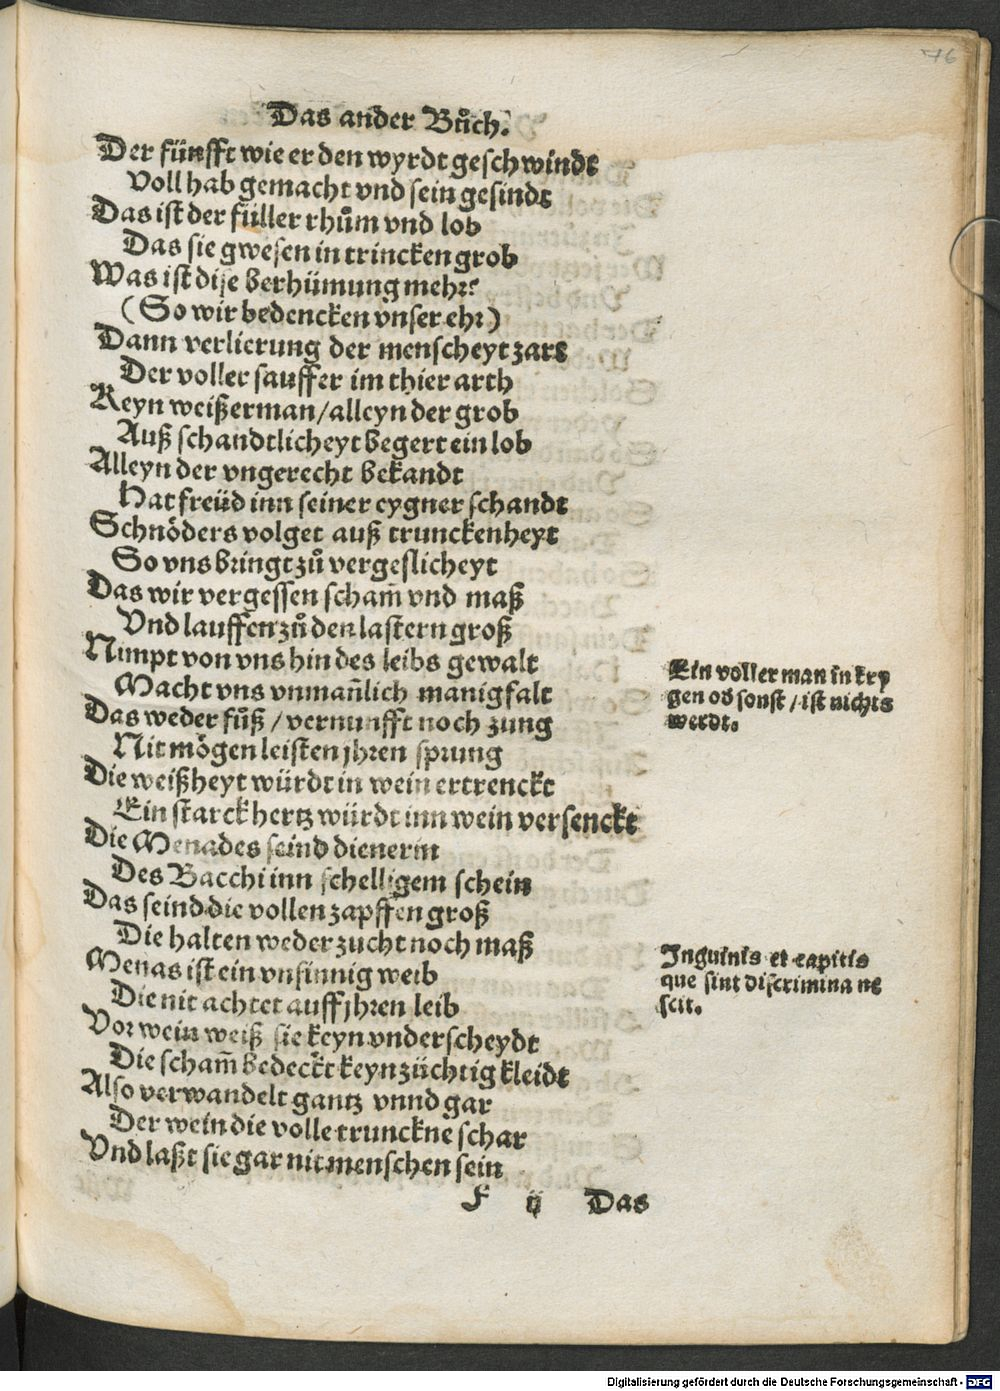 46
Das ander Bůch.
Der fünfft wie er den wyrdt geschwindt
Voll hab gemacht vnd sein gesindt
Das ist der füller rhům vnd lob
Das sie gwesen in trincken grob
Was ist dise berhümung mehr?
(So wir bedencken vnser ehr)
Dann verlierung der menscheyt zart
Der voller sauffer im thier arth
Keyn weißer man/alleyn der grob
Auß schandtlicheyt begert ein lob
Alleyn der vngerecht bekandt
Hat freüd inn seiner eygner schandt
Schnöders volget auß trunckenheyt
So vns bringt zů vergeslicheyt
Das wir vergessen scham̄ vnd maß
Vnd lauffen zů den lastern groß
Nimpt von vns hin des leibs gewalt
Macht vns vnman̄lich manigfalt
Das weder fůß / vernunfft noch zung
Nit mögen leisten jhren sprung
Die weißheyt würdt in wein ertrenckt
Ein starck hertz würdt inn wein versenckt
Die Menades seind dienerin
Des Bacchi inn schelligem schein
Das seind die vollen zapffen groß
Die halten weder zucht noch maß
Menas ist ein vnsinnig weib
Die nit achtet auff jhren leib
Vor wein weiß sie keyn vnderscheydt
Die scham̄ bedeckt keyn züchtig kleidt
Also verwandelt gantz vnnd gar
Der wein die volle trunckne schar
Vnd laßt sie gar nit menschen sein
F ij Das
Ein voller man in kry
gen od sonst / ist nichts
werdt.
Inguinis et capitis
que sint discrimina ne
scit.
Digitalisierung gefördert durch die Deutsche Forschungsgemeinschaft - DFG